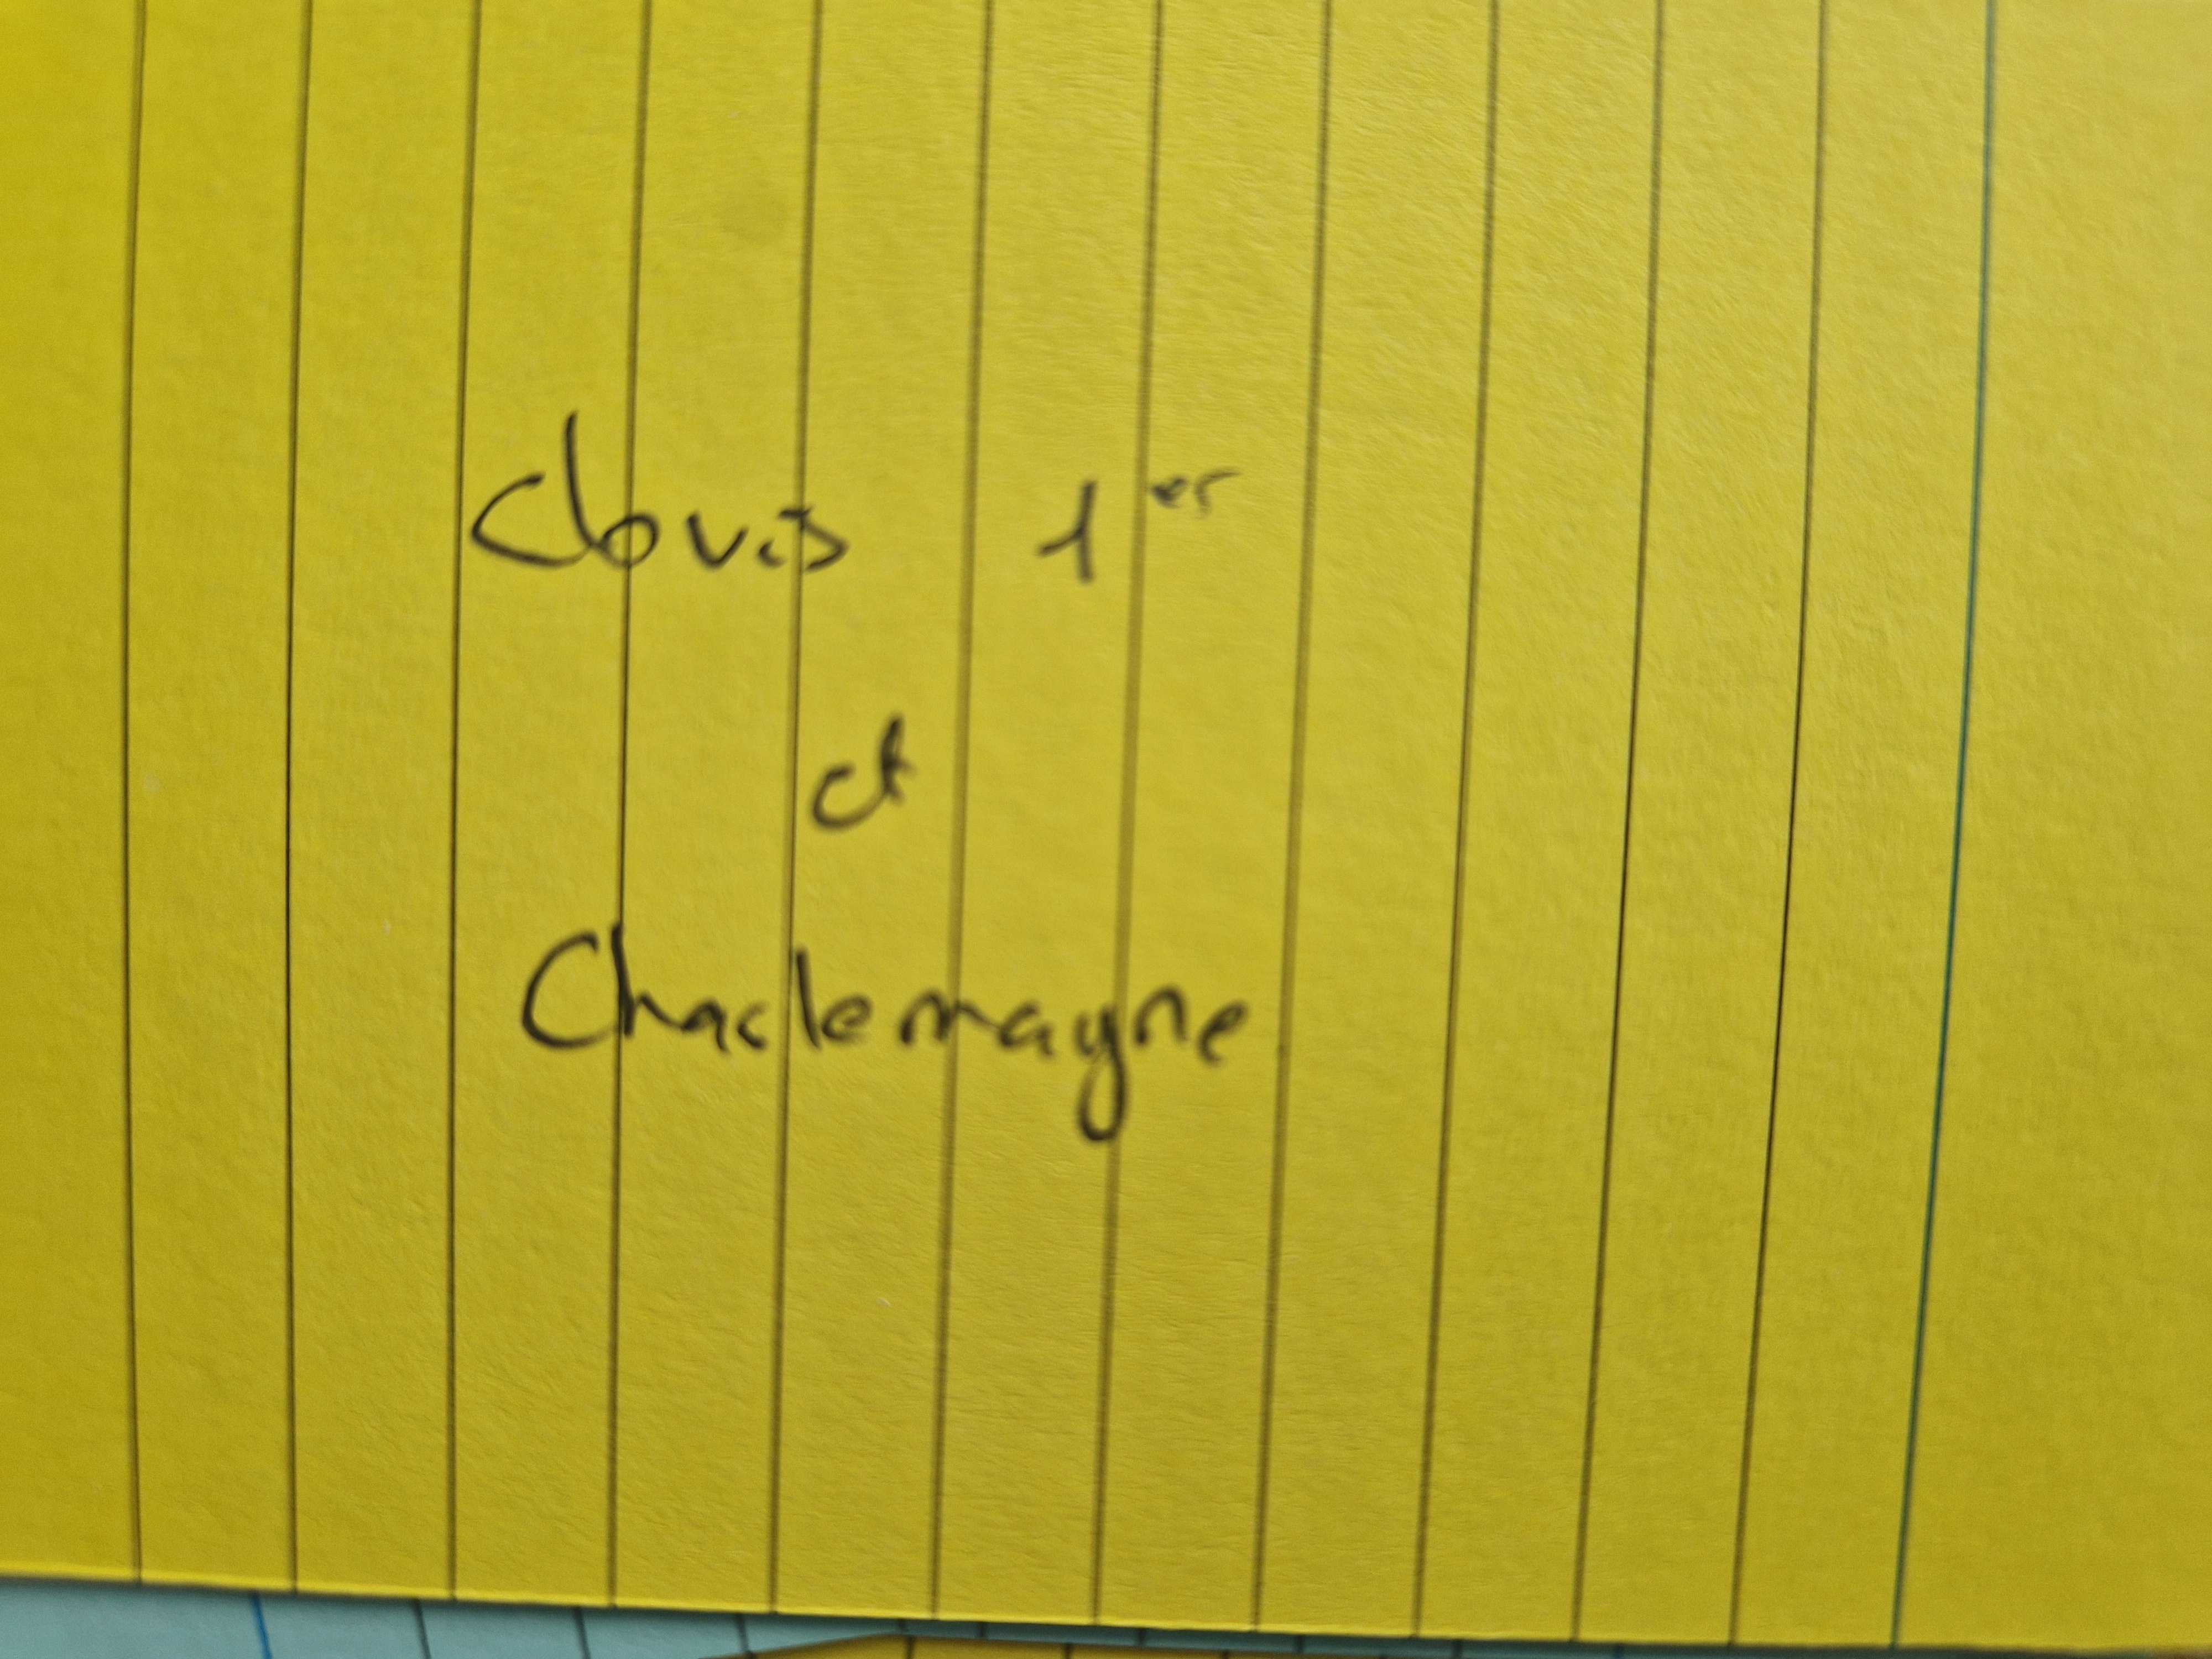 Clovis 1er
et
Charlemagne